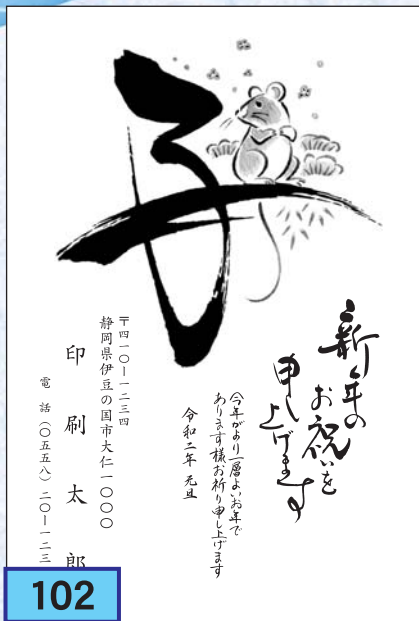 子
新年の
お祝いを
申し上げます
今年がより一層よいお年で
あります様お祈り申し上げます
令和二年 元旦
〒四一〇―一二三四
静岡県伊豆の国市大仁一〇〇〇
印刷太郎
電話(〇五五八)二〇―一二三
102